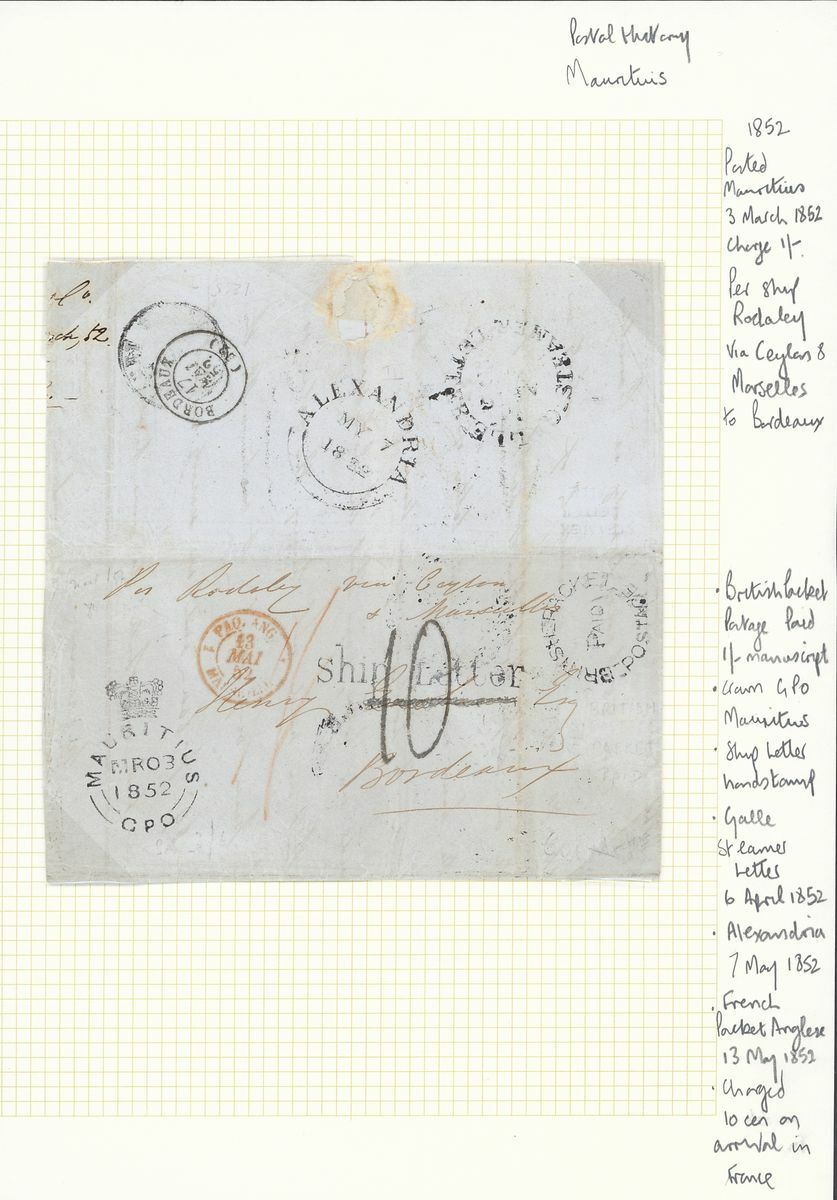 Postal History
Mauritius
1852
Posted
Mauritius
3 March 1852
Charge 1/-.
Per Ship
Rodsley
Via Ceylon &
Marseilles
to Bordeaux
ch, 52.
BORDEAUX (32)
17
ALEXANDRIA
MY 7
1852
STEAMER LETTER
Per Rodsley via Ceylon
& Marseilles
PAQ. ANG.
13
MAI
1/
BRITISH PACKET POSTAGE
PAID
Ship Letter
10
Henry
Esq
Bordeaux
MAURITIUS
MR 03
1852
GPO
· British Packet
Postage Paid
1/- manuscript
· Crown GPO
Mauritius
· Ship Letter
handstamp
· Galle
Steamer
Letter
6 April 1852
· Alexandria
7 May 1852
· French
Packet Anglese
13 May 1852
· Charged
10 cen on
arrival in
France